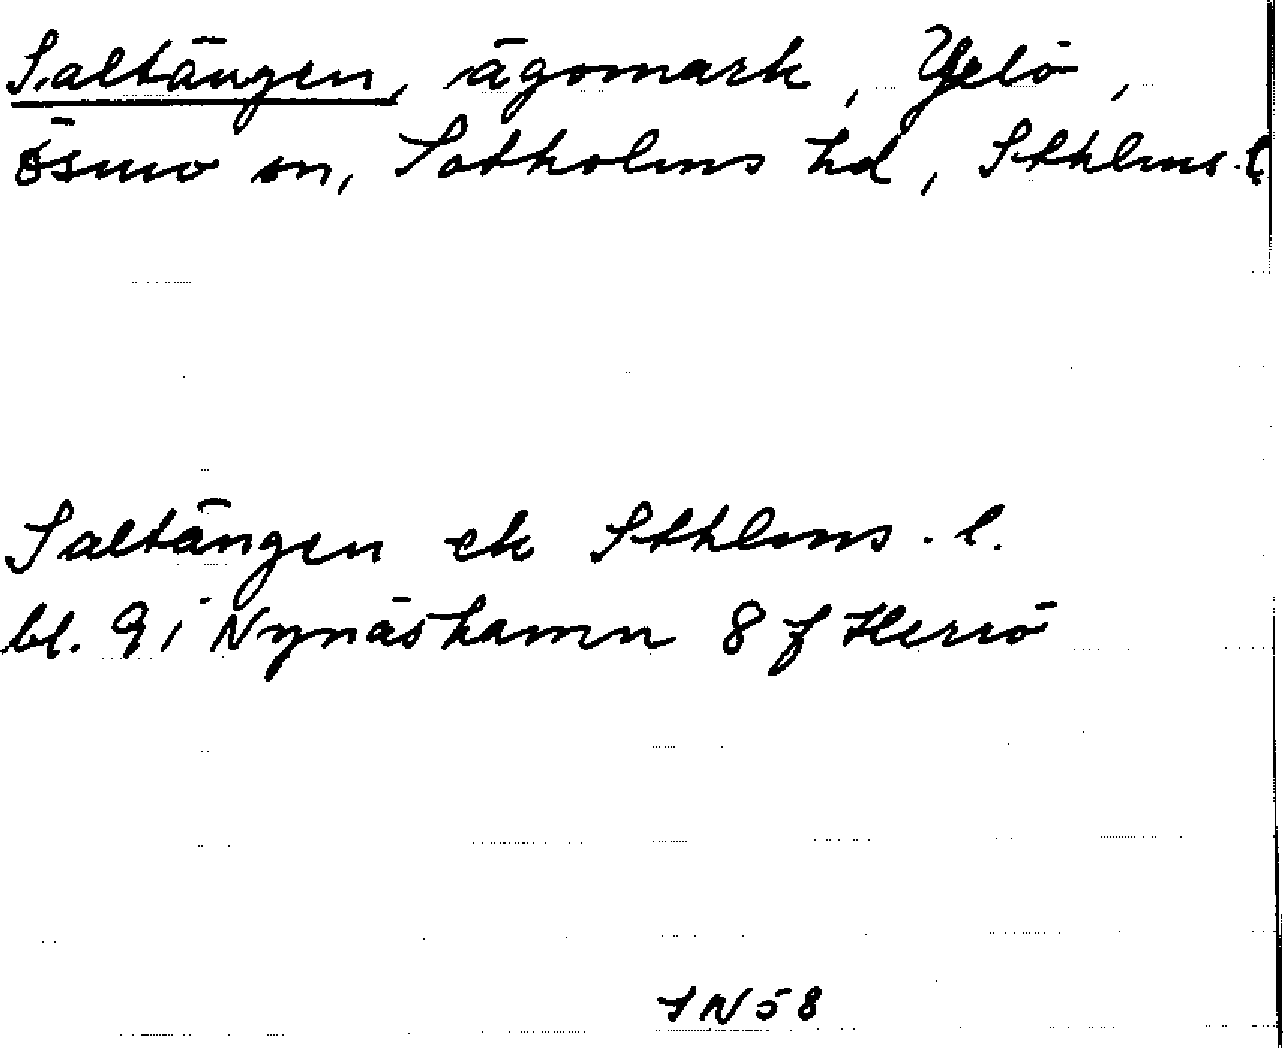 Saltängen, ägomark, Yxlö,
Ösmo sn, Sotholms hd, Sthlms. l
Saltängen ek Sthlms. l.
bl. 9 i Nynäshamn 8 f Herrö
IN58